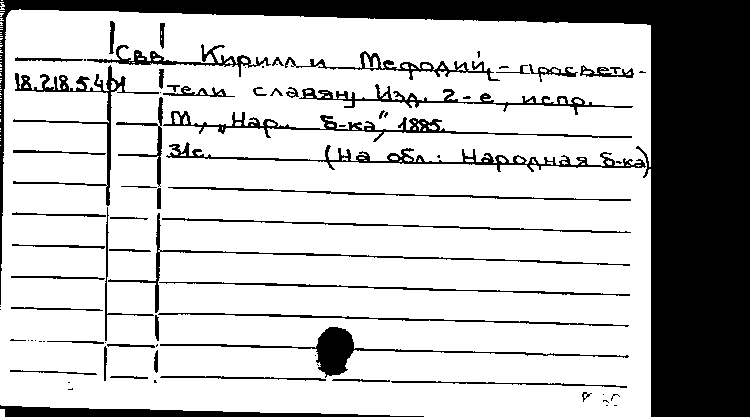 Свв. Кирилл и Мефодий, - просвети-
18.218.5.401 тели славян]. Изд. 2-е, испр.
М., „Нар. б-ка", 1885.
31с. (На обл.: Народная б-ка)